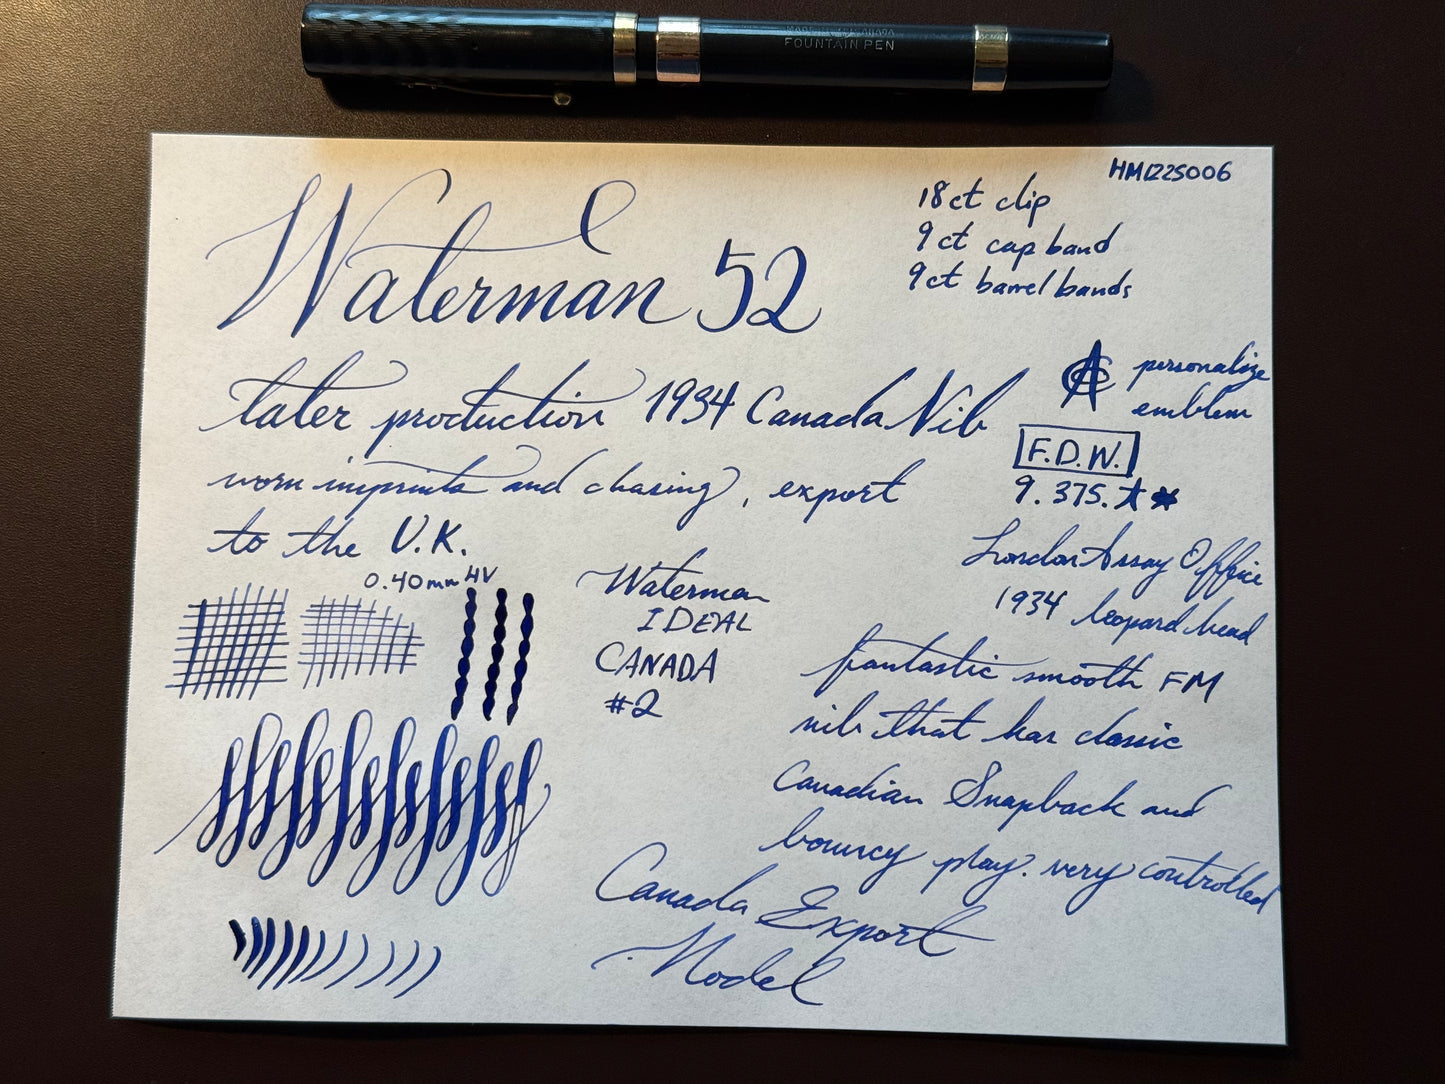 FOUNTAIN PEN
HM1225006
18ct clip
9ct cap band
9ct barrel bands
Waterman 52
later production 1934 Canada Nib
worn imprints and chasing, export
to the U.K.
personalize
emblem
F.D.W.
9.375.
London Assay Office
1934 leopard head
0.40mm HV
Waterman
IDEAL
CANADA
#2
fantastic smooth FM
nib that has classic
Canadian Snapback and
bouncy play. very controlled
Canada Export
Model